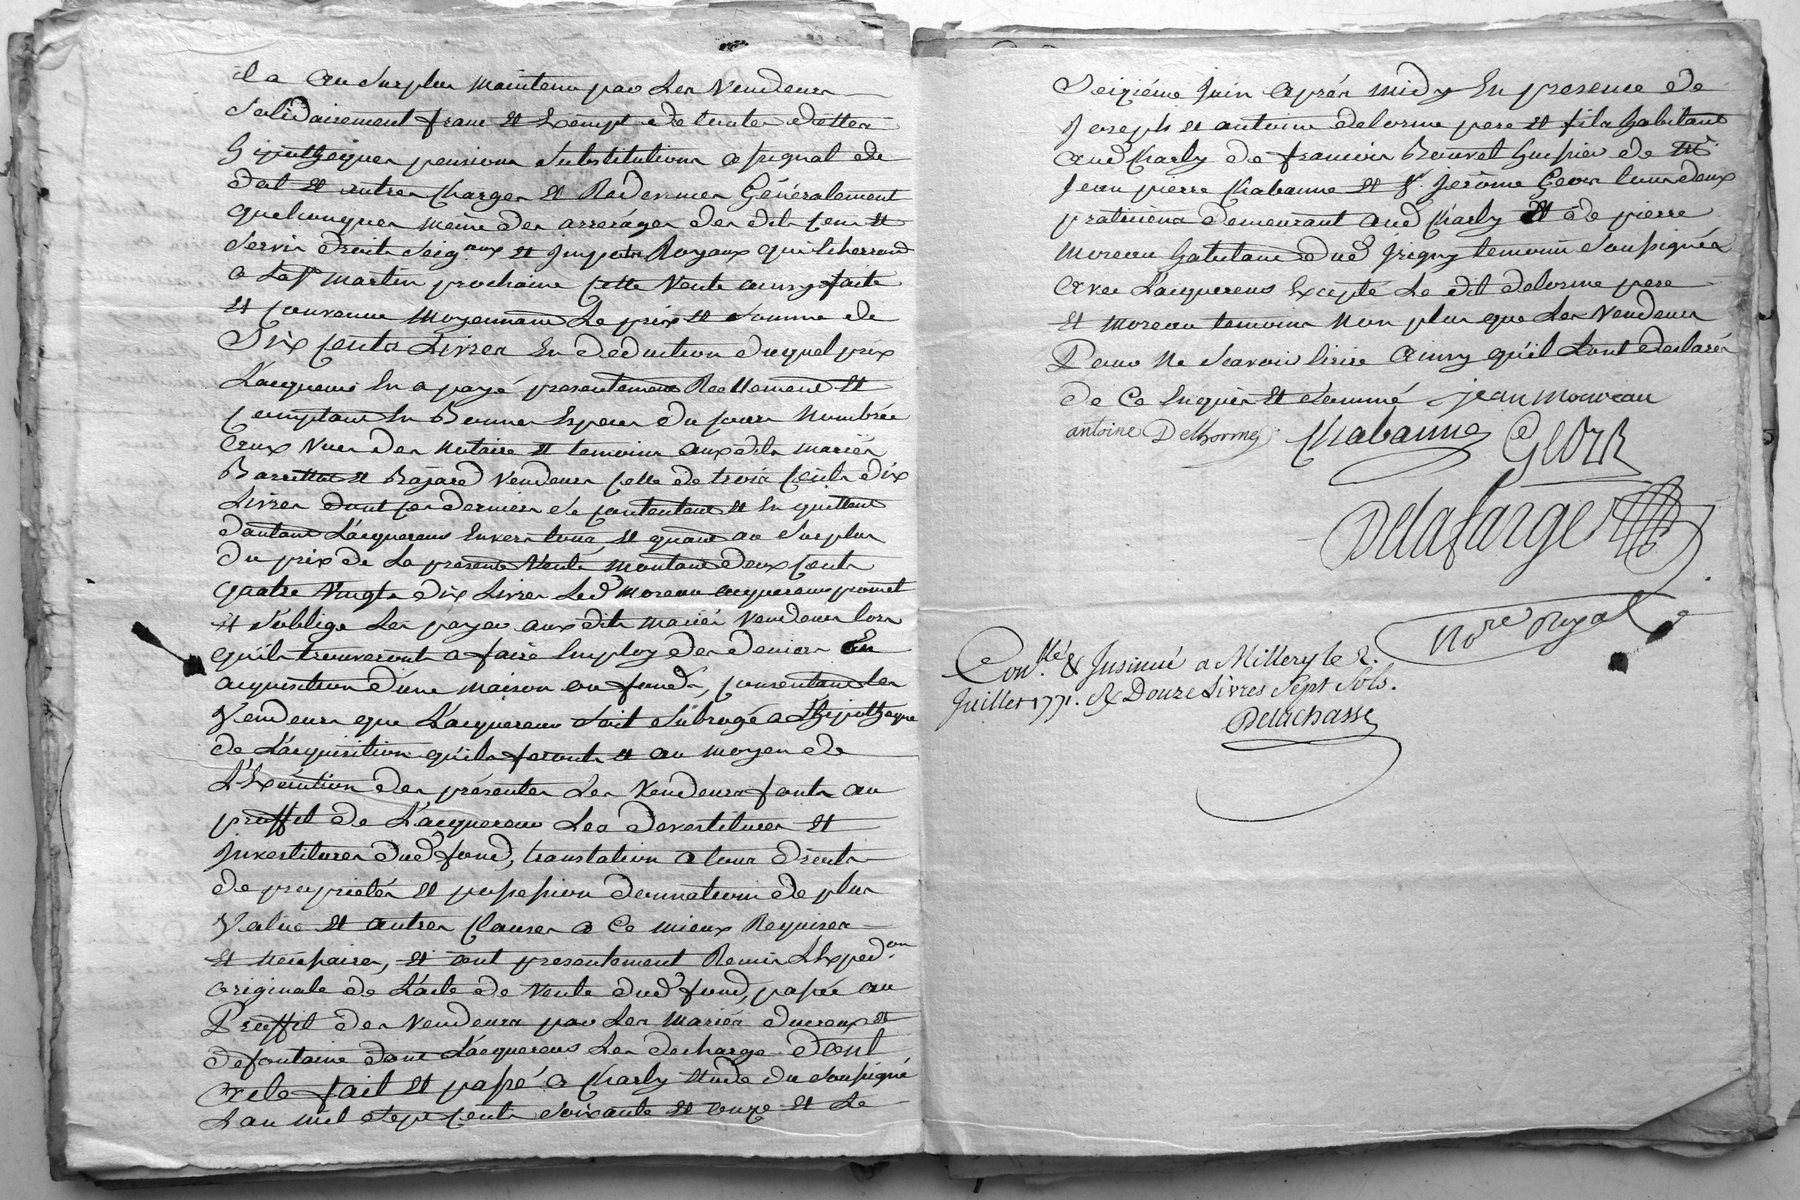 il a au surplus maintenu par les Vendeurs
solidairement franc et Exempt de toutes dettes
hipotheques pensions substitutions assignal de
dot et autres Charges et Redevances Généralement
quelconques même des arrerages des dits cens et
servis droits Seig.aux et Impots Royaux qui
a la St martin prochaine cette Vente ainsy faite
et convenue moyennant Le prix et somme de
Six cents Livres En deduction duquel prix
L'acquereur En a payé presentement Reellement et
comptant En Bonnes Especes du cours nombrée
aux vues des notaire et temoins auxdits mariés
et Bajard Vendeurs celle de trois cents dix
Livres dont ces derniers se contentent et En quittent
d'autant L'acquereur Envers tous, et quant au surplus
du prix de La presente Vente montant deux cents
quatre Vingts dix Livres Led. moreau acquereur promet
et s'oblige Les payer aux dits mariés Vendeurs lors
qu'ils trouveront a faire Employ des deniers En
acquisition d'une maison ou fonds, consentant les
Vendeurs que L'acquereur soit subrogé a L'hipotheque
de L'acquisition qu'ils feront et au moyen de
L'Exécution des présentes Les Vendeurs font au
proffit de L'acquereur Les devestitures et
Investitures dud. fond, translation a tous droits
de proprietés et possession donnation de plus
Value et autres Clauses a Ce mieux Requises
et necessaires, et ont presentement Remis L'Exped.on
originale de L'acte de Vente dud. fond, passée au
Proffit des Vendeurs par Les mariés ducreux et
defontaine dont L'acquereur Les decharge Dont
acte fait et passé a Charly Etude du soussigné
L'an mil sept cents soixante et onze et Le
Seizième Juin après midy En presence de
Joseph et antoine delorme pere et fils habitant
aud. Charly de francois Bouvet huissier de
Jean pierre Chabanne et Sr. Jerôme Geoir tous deux
praticiens demeurant aud. Charly et de pierre
moreau habitant dud. Irigny temoins soussignés
avec L'acquereur Excepté Le dit delorme pere
et moreau temoins non plus que Les Vendeurs
Pour ne scavoir Ecrire ainsy qu'ils L'ont declarés
de Ce Enquis et sommé jean moureau
antoine Delhorme Chabanne Geoir
Delafarge
No.re Royal
Con.llé & Insinué a Millery le 2.
Juillet 1771. R Douze Livres Sept Sols.
Delachasse